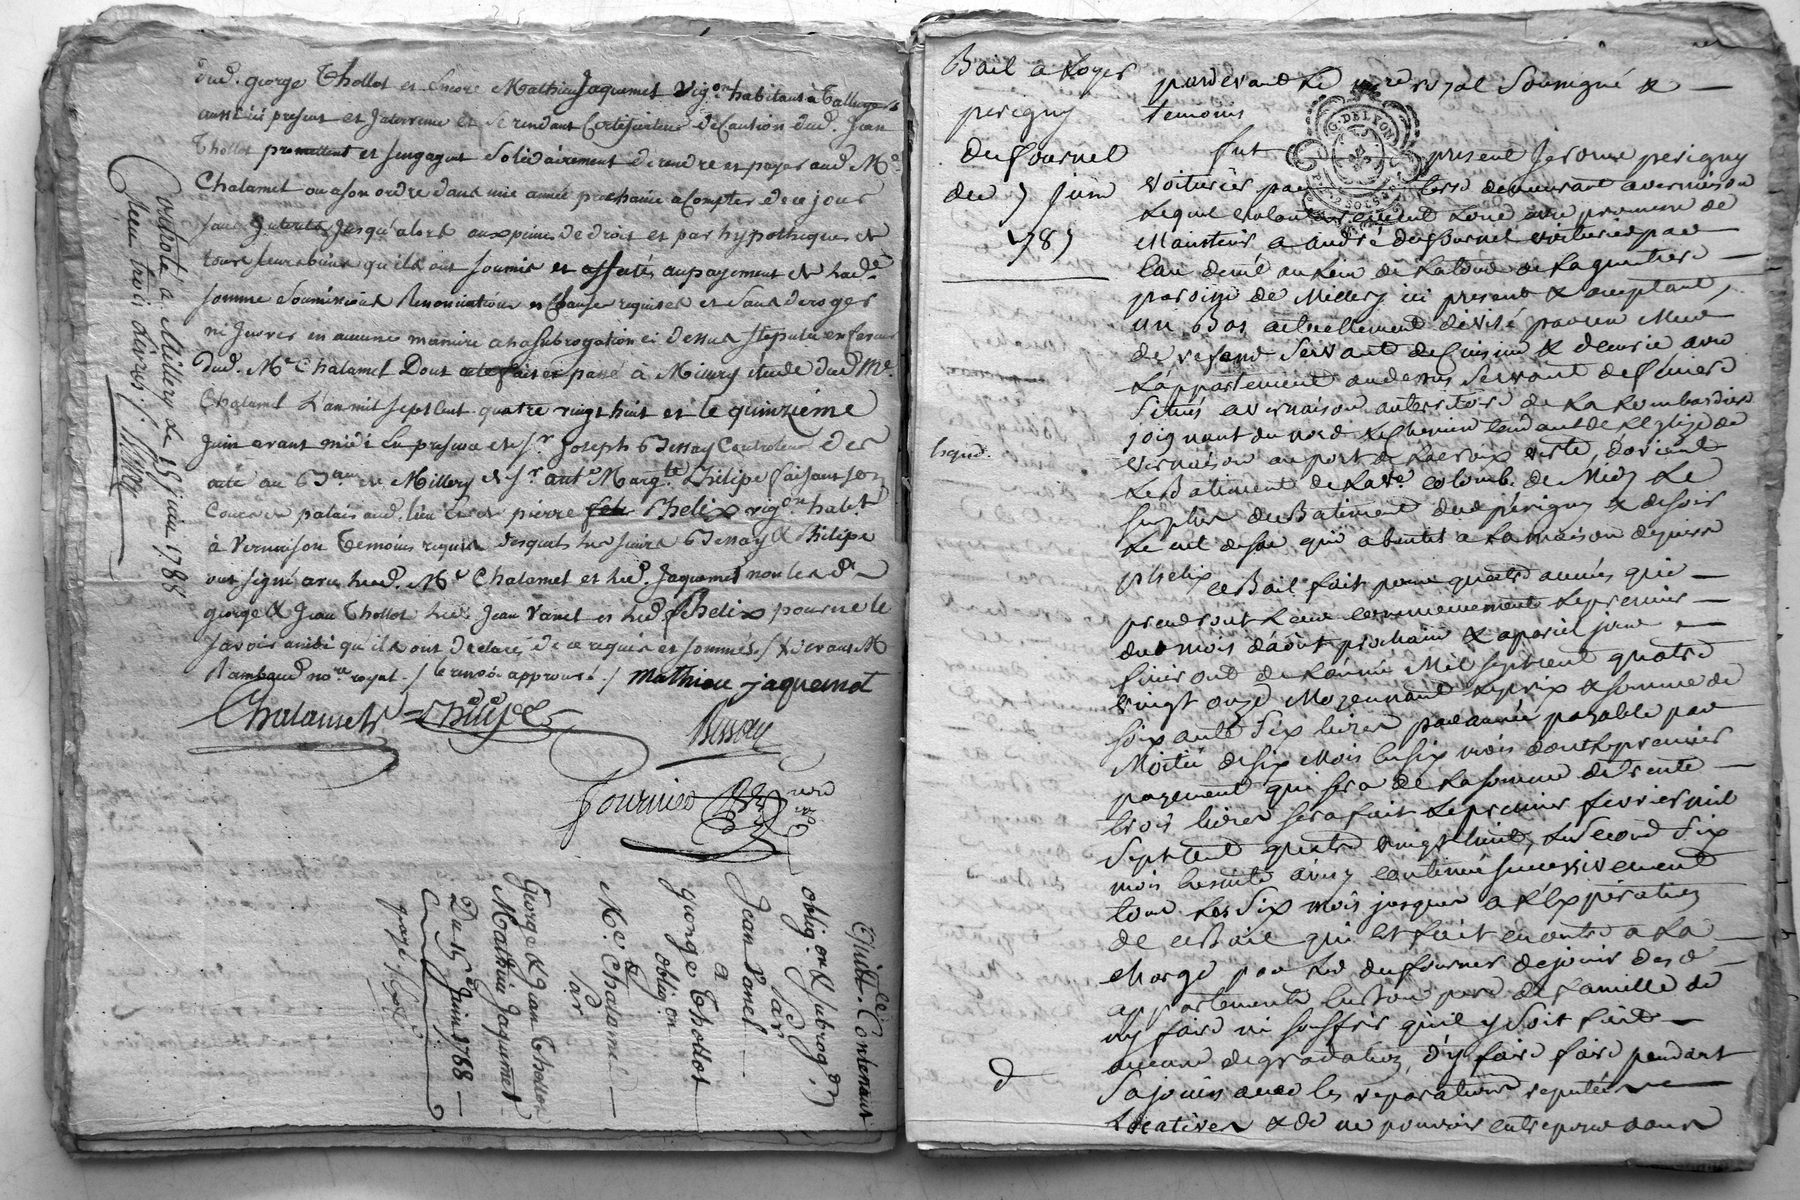 dud. george Thollot et Encore Mathieu Jaquemet vig.on habitant a Talluyers
aussi ici present et Intervenu et se rendant Certificateur de Caution dud. Jean
Thollot promettent et sengagent Solidairement de rendre et payer aud. Me
Chalamel ou a son ordre dans une année prochaine a Compter de ce jour
sans Interets Jusqu'alors aux peines de droit et par hypotheques de
tous leurs biens qu'ils ont soumis et affectés au payement de lade.
somme Soumissions Renonciations et Clauses requises et sans deroger
ni Innover en aucune maniere a la subrogation ci dessus stipulée en faveur
dud. Me Chalamel Dont acte fait et passé à Millery etude dud. Me
Chalamel L'an mil sept Cent quatre vingt huit et le quinzieme
Juin avant midi En presence de Sr. Joseph Bessay Controleur des
acte au Bau. de Millery et Sr. ant. Marg.te Philipe faisant son
Cours de palais aud. lieu et de pierre Phelix vig.on habt.
à Vernaison Temoins requis desquels les sieurs Bessay & Philipe
ont signé avec led. Me Chalamel et led. Jaquemet non les d.
george & Jean Thollot led. Jean Vanel et led. Phelix pour ne le
savoir ainsi qu'ils ont declaré de ce requis et sommés / & devant Me
Rambaud nore royal ./ le renvoi approuvé ./ mathieu jaquemet
Chalamel Philipe
Bessay
Fournier
Controlé a Millery Le 15 juin 1788
Reçu trois Livres ./. Bessay
Quitt.ce Contenant
oblig.on & subrog.on
Par
Jean Vanel
a
George Thollot
oblig.on
Me. Chalamel
Par
George & Jean Thollot
Mathieu Jaquemet
Du 15e Juin 1788
Bail a Loyer
perigny
du fournel
du 7 juin
1787
pardevant Le nore royal Soussigné &
temoins
fut present Jerome perigny
voiturier par terre demeurant a vernaison
Lequel volontairement Loue avec promesse de
Maintenir a andré du fournel voiturier par
eau demt. au Lieu de La tour de La guertiere
paroisse de Millery ici present & acceptant,
un Bas actuellement divisé par un Mur
de refend servant de Cuisine & decurie avec
L'appartement au dessus servant de fenierd
Situés a vernaison au territoire de La Lombardiere
joignant du nord Le Chemin tendant de L'eglise de
vernaison au port de La croix verte, dorient
Le Batiment de La ve colomb. de Midy Le
surplus du Batiment dud perigny & de soir
Le cul de sac qui aboutit a La maison de pierre
phelix ce Bail fait pour quatre années qui
prendront Leur commencement Le premier
du mois daoût prochain & a pareil jour
finiront de L'année Mil sept cent quatre
vingt onze Moyennant Le prix & somme de
soixante six livres par année payable par
Moitié de six Mois en six mois dont Le premier
payement qui sera de La somme de trente
trois livres sera fait Le premier fevrier mil
sept cent quatre vingt huit, Le second six
mois ensuite ainsy continué successivement
tous Les six mois jusques a L'expiration
de ce Bail qui est fait en outre a La
charge par led du fournel de jouir des d
appartements en bon pere de famille de
ny faire ni souffrir qu'il y Soit fait
aucune degradation, d'y faire faire pendant
Sa jouissance les reparations reputées
Locatives & de ne pouvoir entreposer dans
G. DE LYON